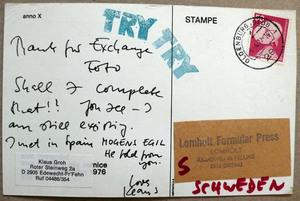 anno X
STAMPE
TRY
TRY
OLDENBURG
Thanks for Exchange
Foto
Shell I complete
that!! You see - I
am still existing.
I met in Spain MOGENS EGIL
He told from
you.
Love
Klaus
Klaus Groh
Roter Steinweg 2a
D 2905 Edewecht-Fr'Fehn
Ruf 04486/354
nice
976
Lomholt Formular Press
S
SCHWEDEN